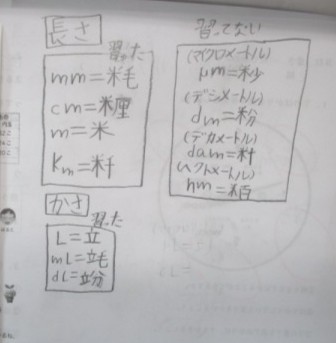 長さ
習った
mm=粍
cm=糎
m=米
Km=粁
かさ
習った
L=立
mL=竓
dL=竕
習ってない
(マイクロメートル)
μm=
(デシメートル)
dm=粉
(デカメートル)
dam=籵
(ヘクトメートル)
hm=粨